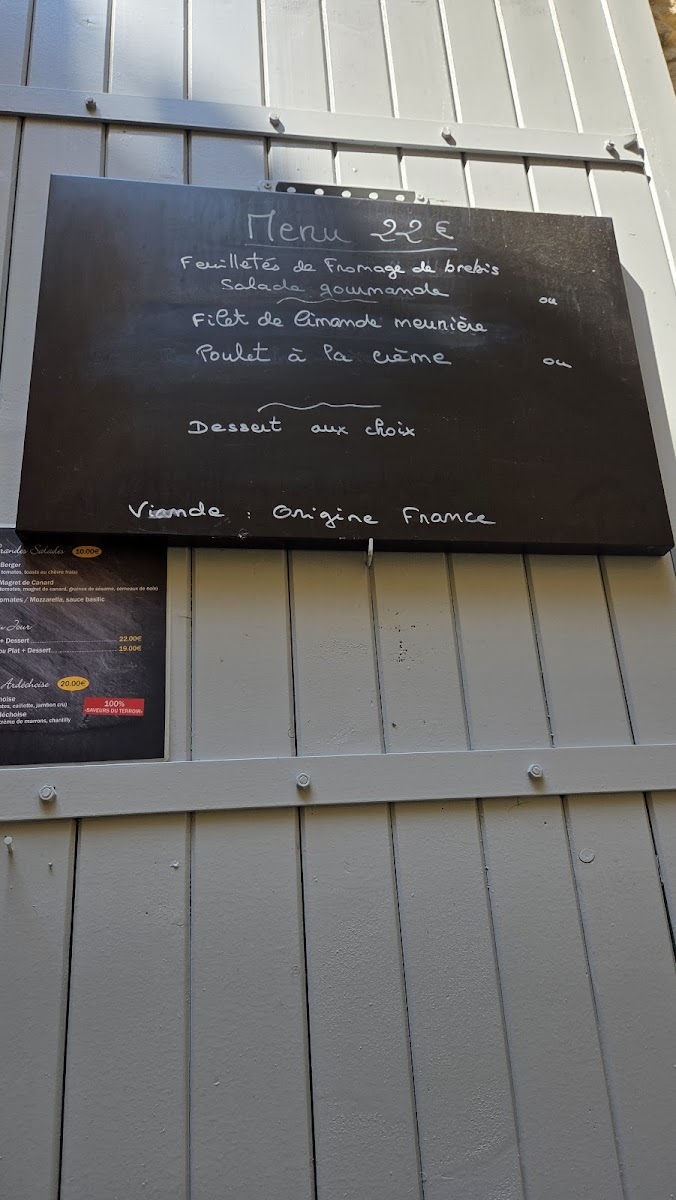 Menu 22€
Feuilletés de Fromage de brebis
Salade gourmande ou
Filet de limande meunière
Poulet à la crème ou
Dessert aux choix
Viande : Origine France
Grandes Salades 10.00€
Berger
tomates, toasts au chèvre frais)
Magret de Canard
tomates, magret de canard, graines de sésame, cerneaux de noix)
omates / Mozzarella, sauce basilic
Jour
+ Dessert 22.00€
ou Plat + Dessert 19.00€
Ardéchoise 20.00€
hoise
ates, caillette, jambon cru)
déchoise
crème de marrons, chantilly
100%
«SAVEURS DU TERROIR»